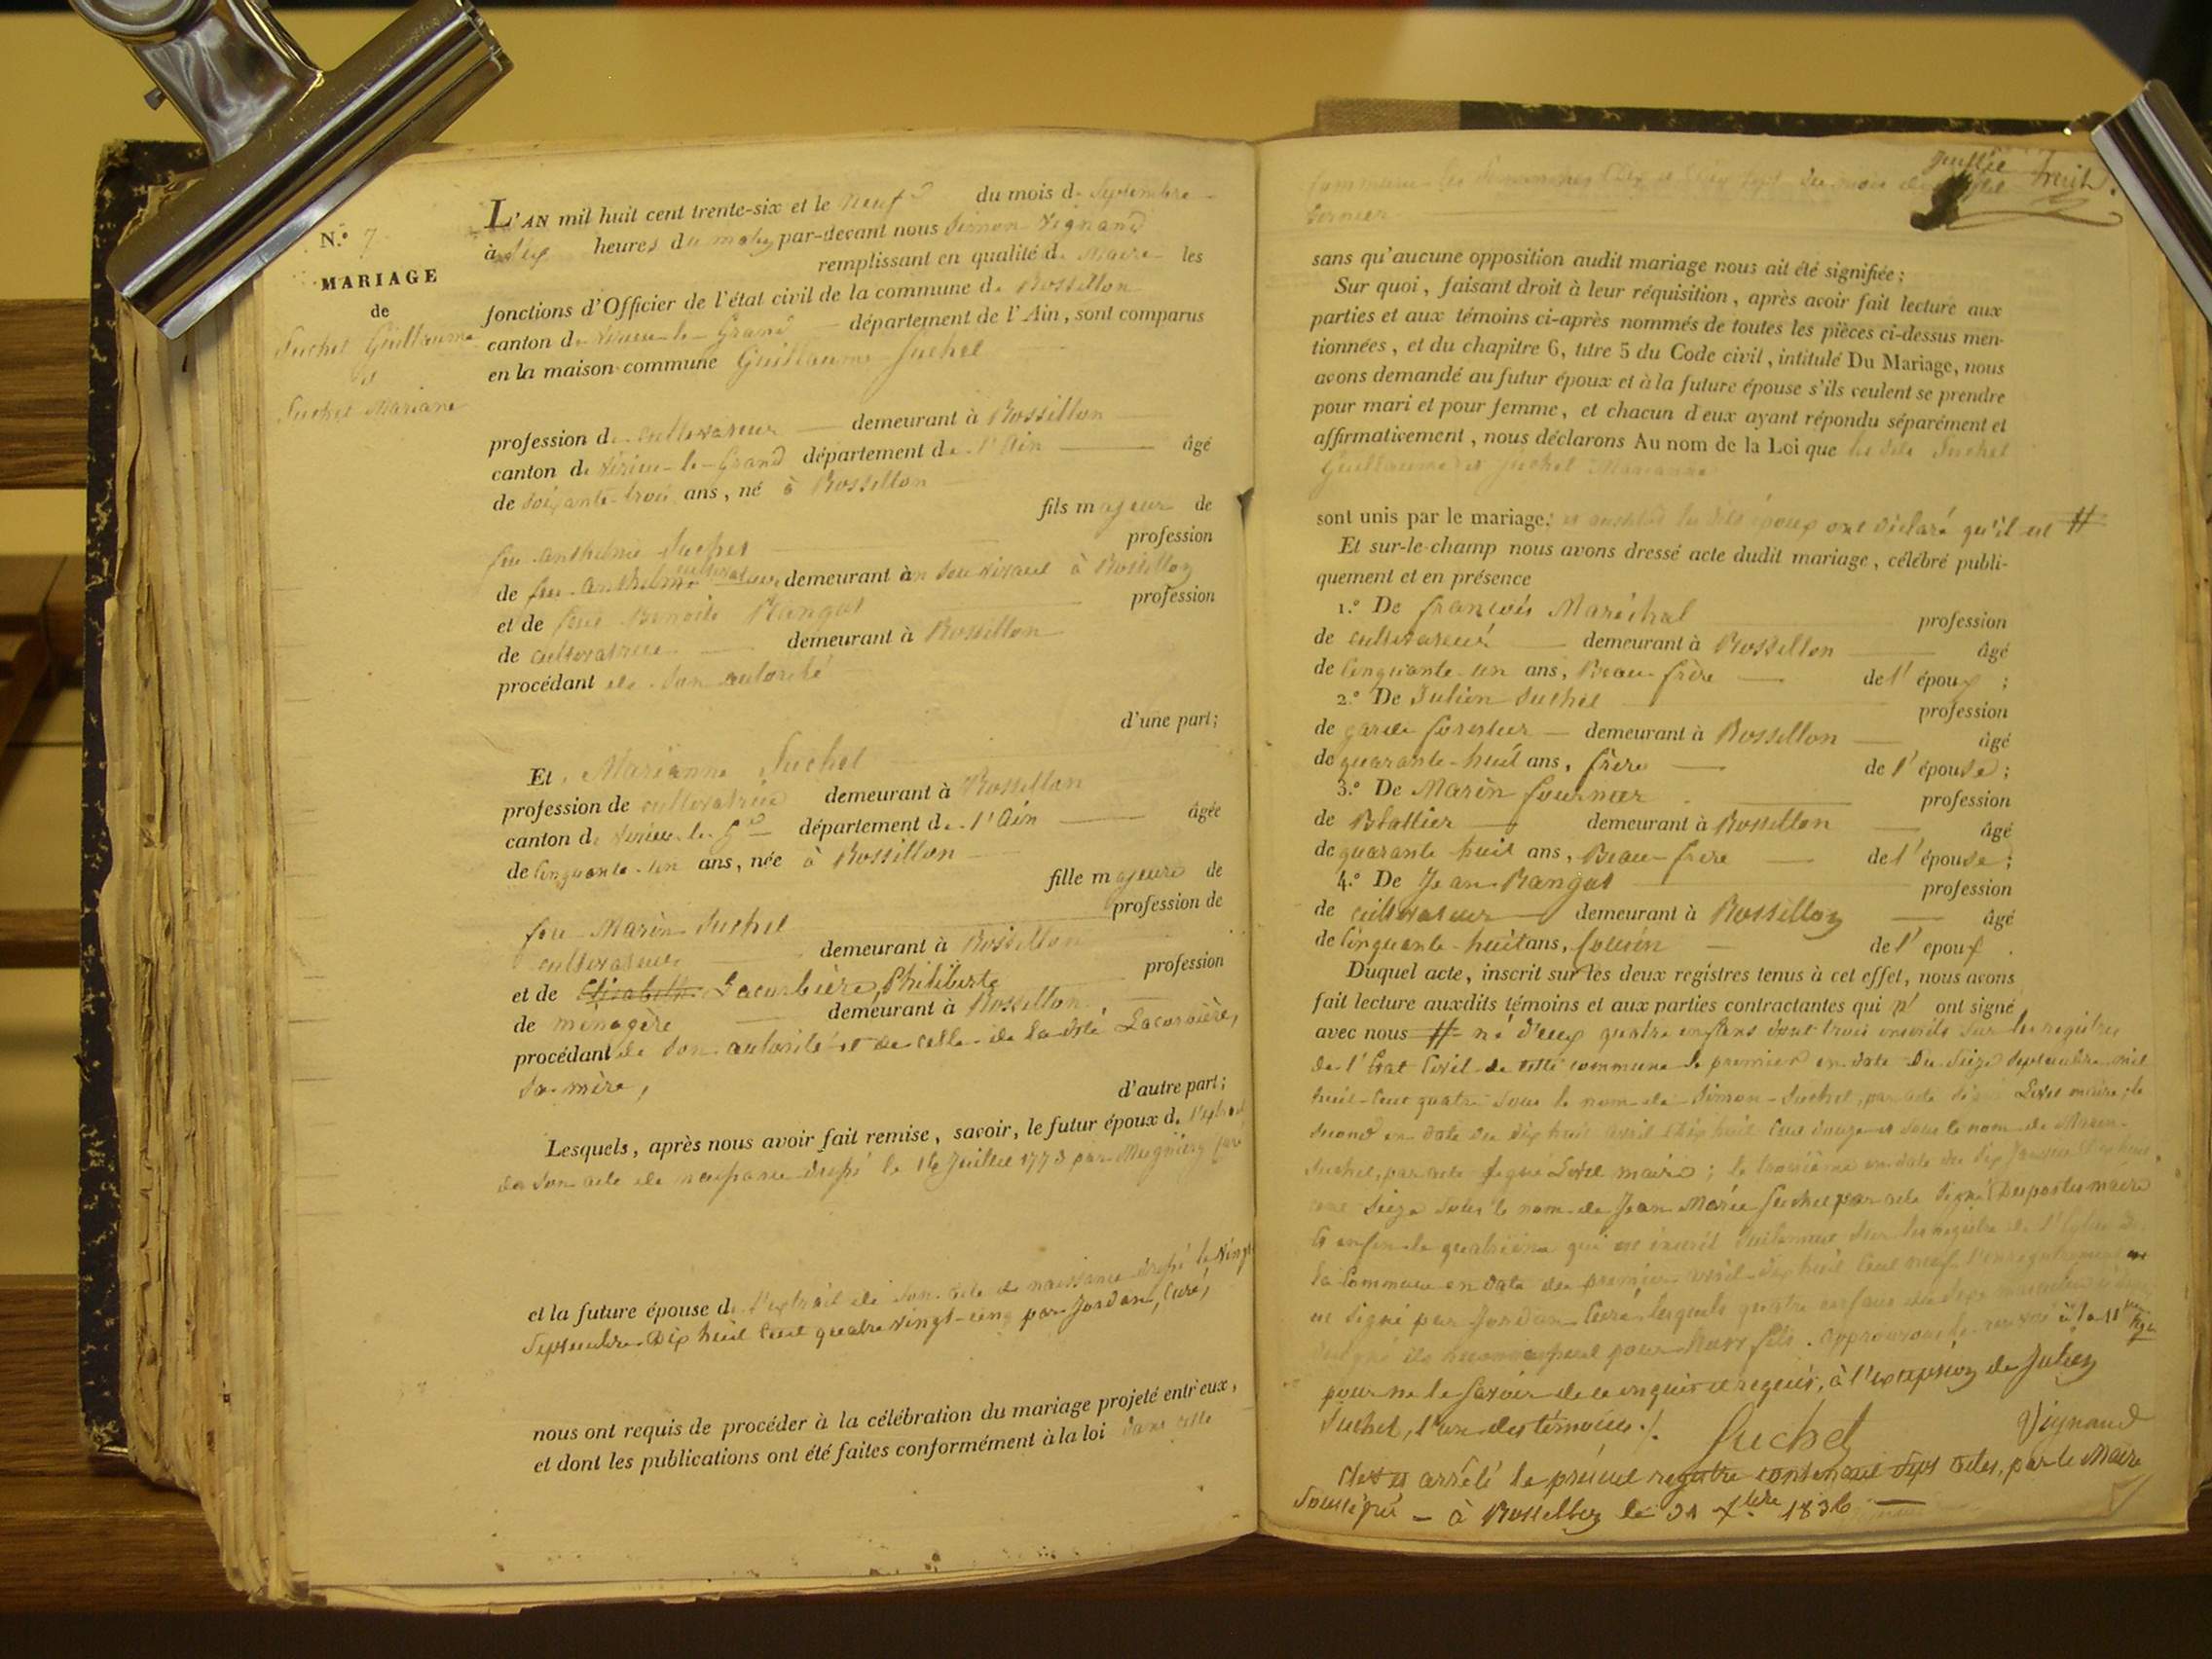 N.o 7
MARIAGE
de
Suchet Guillaume
et
Suchet Mariane
L'AN mil huit cent trente-six et le neuf du mois de Septembre
à dix heures du matin par-devant nous Simon Vignand
remplissant en qualité de Maire les
fonctions d'Officier de l'état civil de la commune de Rossillon
canton de Virieu-le-Grand département de l'Ain, sont comparus
en la maison commune Guillaume Suchet
profession de cultivateur demeurant à Rossillon
canton de Virieu-le-Grand département de l'Ain âgé
de soixante-trois ans, né à Rossillon
fils majeur de
feu Anthelme Suchet profession
de feu Anthelme cultivateur, demeurant à en son vivant à Rossillon
et de feue Benoite Rangot profession
de cultivatrice demeurant à Rossillon
procédant de son autorité
d'une part;
Et Marianne Suchet
profession de cultivatrice demeurant à Rossillon
canton de Virieu-le-Gd département de l'Ain âgée
de cinquante-un ans, née à Rossillon
fille majeure de
feu Marin Suchet profession de
cultivateur demeurant à Rossillon
et de Elisabeth Lacorbière, Philiberte profession
de ménagère demeurant à Rossillon
procédant de son autorité et de celle de la dite Lacorbière,
sa mère,
d'autre part;
Lesquels, après nous avoir fait remise, savoir, le futur époux de l'extrait
de son acte de naissance dressé le 16 Juillet 1773 par curé
et la future épouse de l'extrait de son acte de naissance dressé le vingt
Septembre Dix huit Cent quatre vingt-cinq par Jordan, Curé,
nous ont requis de procéder à la célébration du mariage projeté entr'eux,
et dont les publications ont été faites conformément à la loi dans cette
commune les Dimanches Dix et Dix Sept du mois de juillet
dernier
sans qu'aucune opposition audit mariage nous ait été signifiée;
Sur quoi, faisant droit à leur réquisition, après avoir fait lecture aux
parties et aux témoins ci-après nommés de toutes les pièces ci-dessus men-
tionnées, et du chapitre 6, titre 5 du Code civil, intitulé Du Mariage, nous
avons demandé au futur époux et à la future épouse s'ils veulent se prendre
pour mari et pour femme, et chacun d'eux ayant répondu séparément et
affirmativement, nous déclarons Au nom de la Loi que les dits Suchet
Guillaume et Suchet Marianne
sont unis par le mariage; et aussitôt les dits époux ont déclaré qu'il est #
Et sur-le-champ nous avons dressé acte dudit mariage, célébré publi-
quement et en présence
1.o De François Maréchal profession
de cultivateur demeurant à Rossillon âgé
de cinquante-un ans, Beau-frère de l'époux;
2.o De Julien Suchet profession
de garde forestier demeurant à Rossillon âgé
de quarante-huit ans, frère de l'épouse;
3.o De Marin fournier profession
de Blattier demeurant à Rossillon âgé
de quarante huit ans, Beau-frère de l'épouse;
4.o De Jean Rangot profession
de cultivateur demeurant à Rossillon âgé
de cinquante-huit ans, Cousin de l'époux.
Duquel acte, inscrit sur les deux registres tenus à cet effet, nous avons
fait lecture auxdits témoins et aux parties contractantes qui n' ont signé
avec nous # né d'eux quatre enfans dont trois inscrits sur les registres
de l'Etat Civil de cette commune le premier en date du Seize Septembre mil
huit-Cent quatre sous le nom de Simon-Suchet, par acte signé maire; le
second en date du dix huit avril Dix huit Cent douze et sous le nom de Marin
Suchet, par acte signé maire; le troisième en date du dix Janvier Dix huit
cent Seize sous le nom de Jean Marie Suchet par acte signé Desportes maire
Et enfin le quatrième qui est inscrit sur les registres de l'Eglise de
la Commune en date du premier avril dix huit Cent neuf
est signé par Jordan Curé, lesquels quatre enfans
ils reconnaissent pour leurs fils. approuvons le renvoi à la 11me ligne
pour ne le savoir de ce enquis et requis, à l'exception de Julien
Suchet, l'un des témoins./.
Suchet Vignand
Clos et arrêté le présent registre contenant sept actes, par le Maire
soussigné - à Rossillon le 31 Xbre 1836